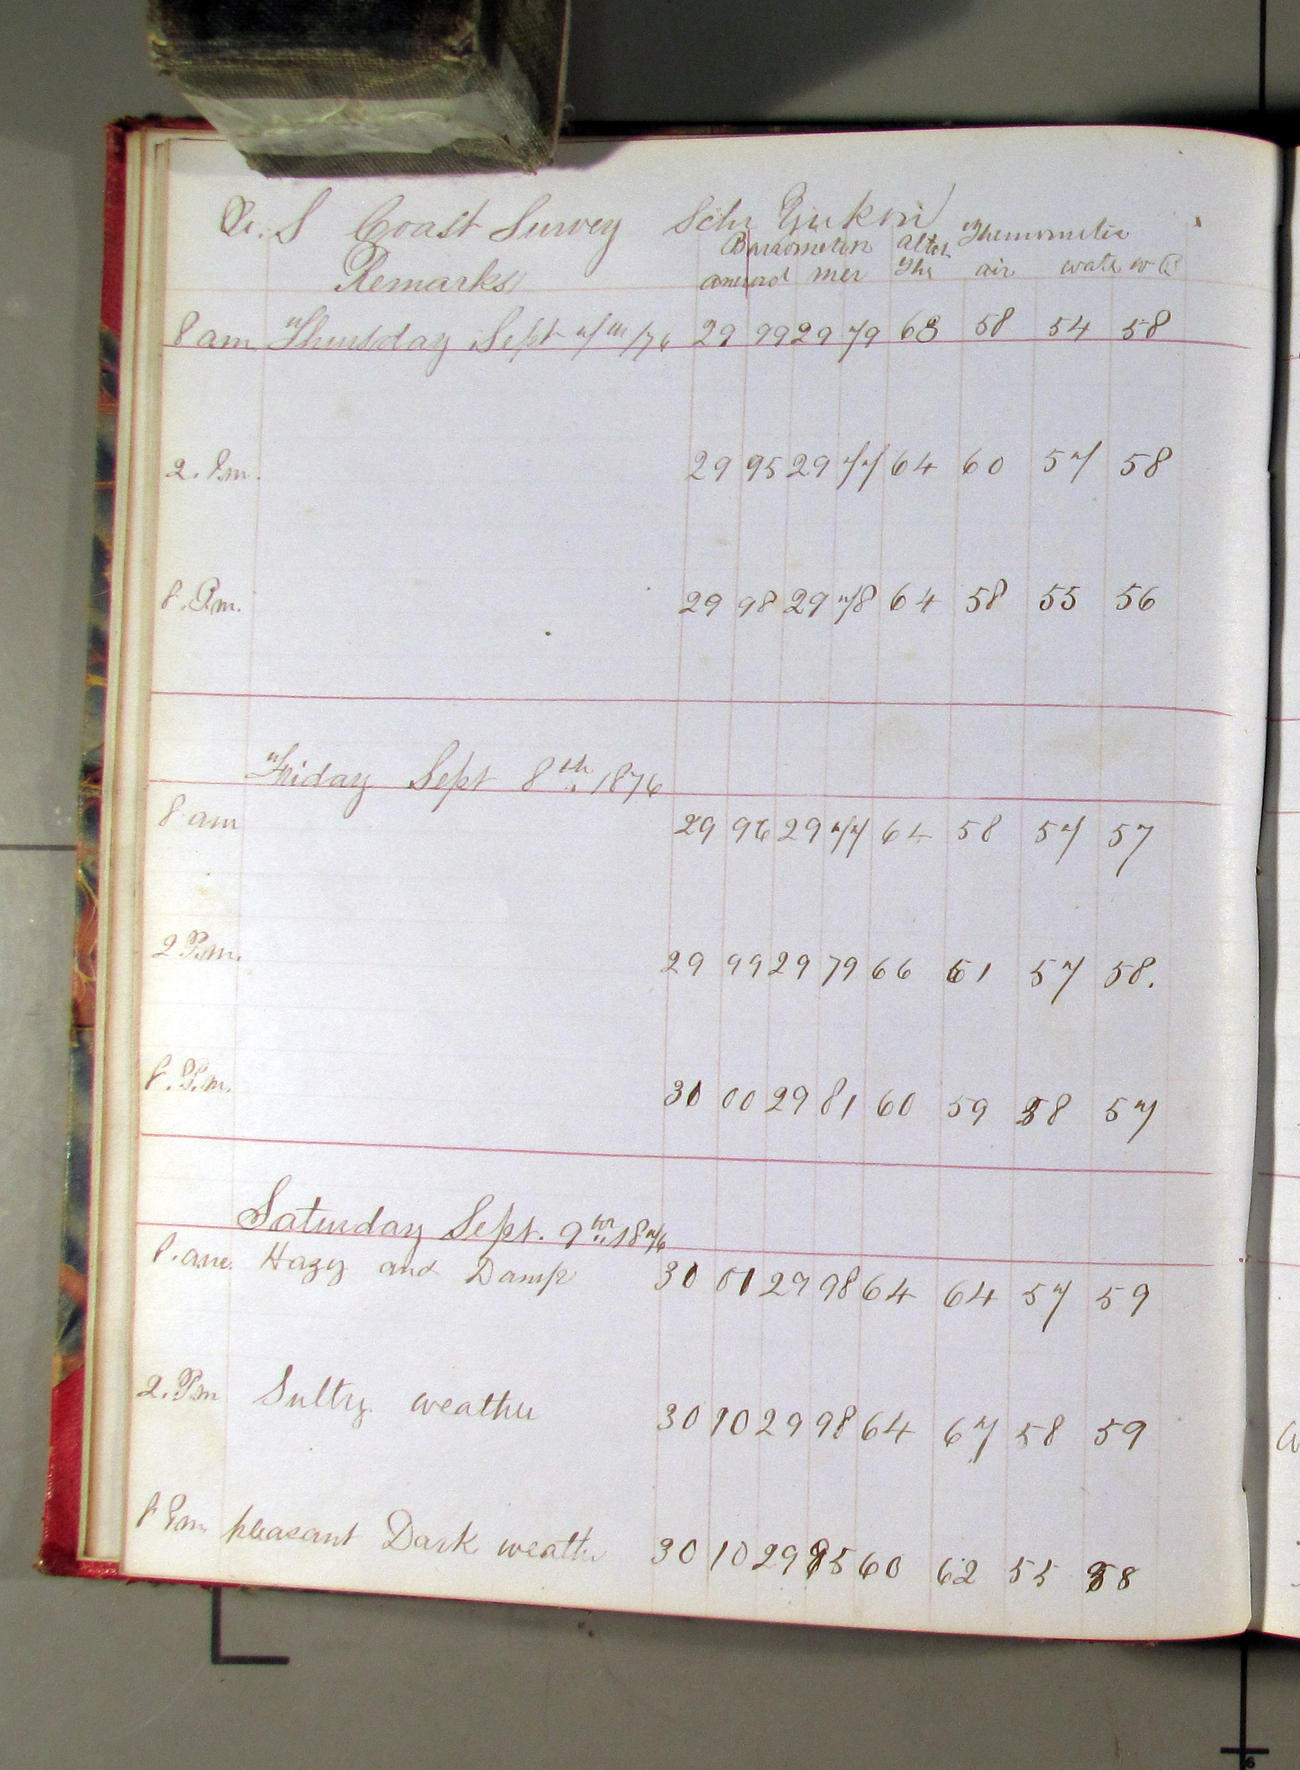 U. S Coast Survey Schr Yukon
Barometer attch Thermometer
Remarks aneroid mer Thr air water w B
8 am Thursday Sept 7/th/76 29 99 29 79 68 58 54 58
2. Pm. 29 95 29 77 64 60 57 58
8. Pm. 29 98 29 78 64 58 55 56
Friday Sept 8th 1876
8 am 29 96 29 77 64 58 57 57
2 Pm. 29 99 29 79 66 61 57 58.
8. Pm. 30 00 29 81 60 59 58 57
Saturday Sept. 9th 1876
8. am. Hazy and Damp 30 01 29 98 64 64 57 59
2. Pm Sultry weather 30 10 29 98 64 67 58 59
8 Pm pleasant Dark weather 30 10 29 95 60 62 55 58
6